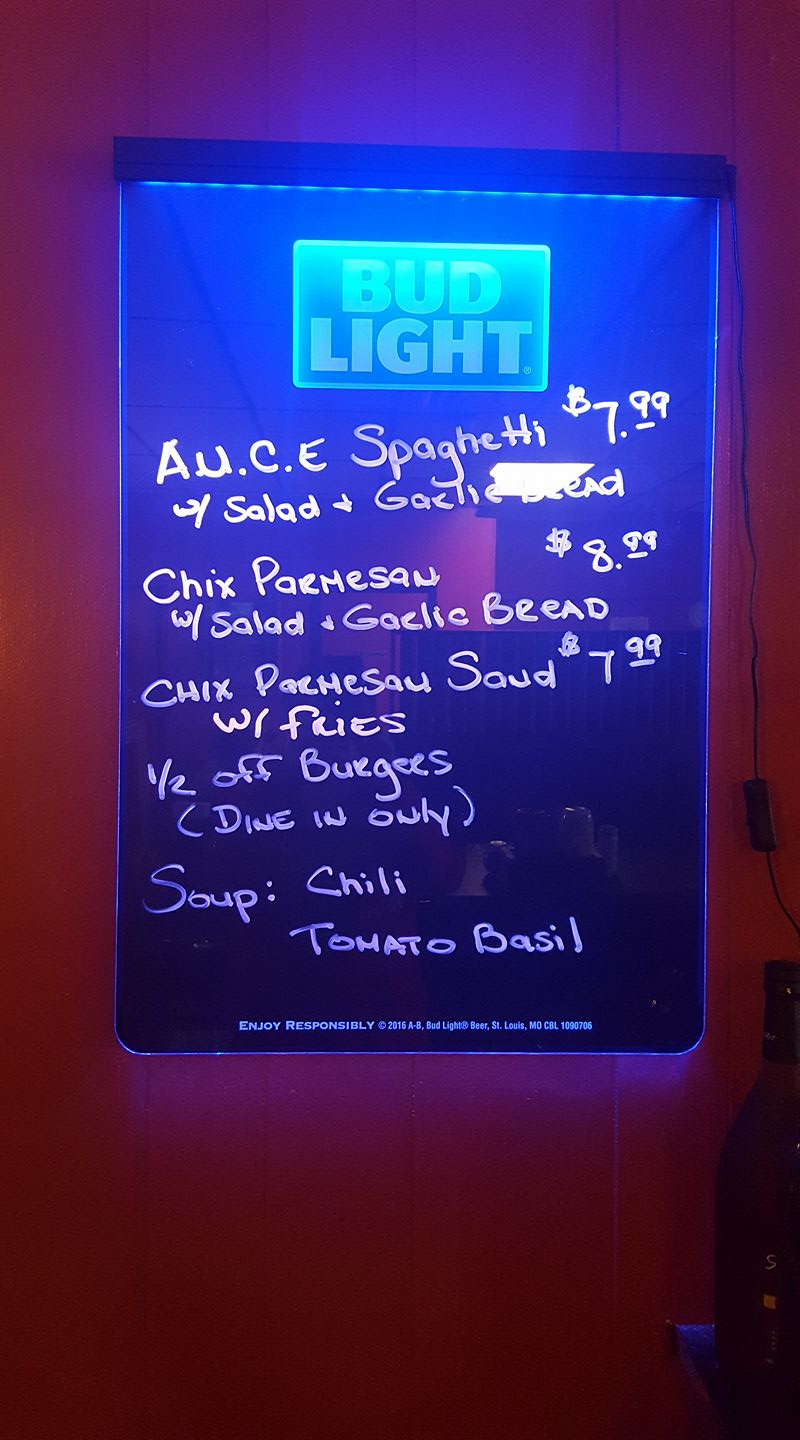 BUD
LIGHT®
A.U.C.E Spaghetti $7.99
w/ Salad + Garlic Bread
Chix Parmesan $8.99
w/ Salad + Garlic Bread
Chix Parmesan Sand $7 99
w/ Fries
1/2 off Burgers
(Dine in only)
Soup: Chili
Tomato Basil
ENJOY RESPONSIBLY © 2016 A-B, Bud Light® Beer, St. Louis, MO CBL 1090706